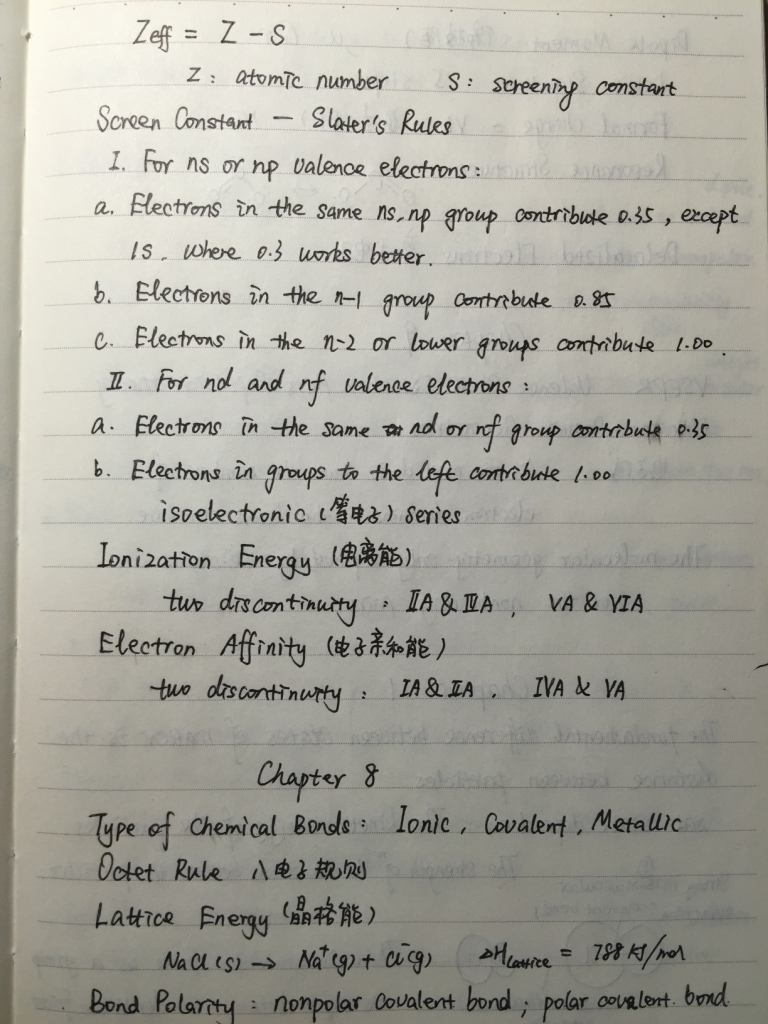 Zeff = Z - S
Z: atomic number S: screening constant
Screen Constant — Slater's Rules
I. For ns or np valence electrons:
a. Electrons in the same ns, np group contribute 0.35, except
1s, where 0.3 works better.
b. Electrons in the n-1 group contribute 0.85
c. Electrons in the n-2 or lower groups contribute 1.00.
II. For nd and nf valence electrons:
a. Electrons in the same nd or nf group contribute 0.35
b. Electrons in groups to the left contribute 1.00
isoelectronic (等电子) series
Ionization Energy (电离能)
two discontinuity: IIA & IIIA, VA & VIA
Electron Affinity (电子亲和能)
two discontinuity: IA & IIA, IVA & VA
Chapter 8
Type of Chemical Bonds: Ionic, Covalent, Metallic
Octet Rule 八电子规则
Lattice Energy (晶格能)
NaCl(s) → Na⁺(g) + Cl⁻(g) ΔHlattice = 788 kJ/mol
Bond Polarity: nonpolar covalent bond; polar covalent bond